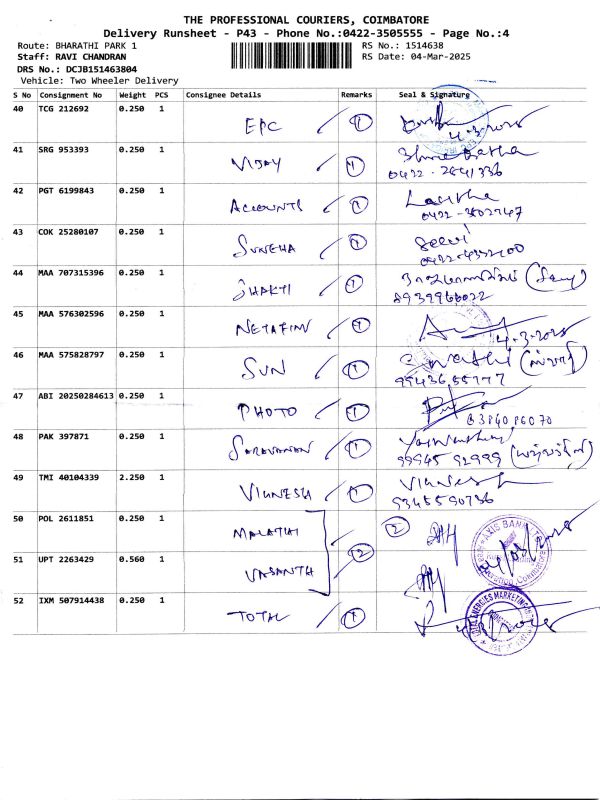 THE PROFESSIONAL COURIERS, COIMBATORE
Delivery Runsheet - P43 - Phone No.:0422-3505555 - Page No.:4
Route: BHARATHI PARK 1
RS No.: 1514638
Staff: RAVI CHANDRAN
RS Date: 04-Mar-2025
DRS No.: DCJB151463804
Vehicle: Two Wheeler Delivery
S No Consignment No Weight PCS Consignee Details Remarks Seal & Signature
40 TCG 212692 0.250 1 EPC 1 4-3-2025
41 SRG 953393 0.250 1 VIJAY 1
0422-2641336
42 PGT 6199843 0.250 1 ACCOUNTS 1 Lalitha
0422-3502747
43 COK 25280107 0.250 1 SUNEHA 1 Selvi
0422-4352100
44 MAA 707315396 0.250 1 SHAKTI 1
8939966022
45 MAA 576302596 0.250 1 NETAFIM 1 4-3-2025
46 MAA 575828797 0.250 1 SUN 1 Swathi
9943655777
47 ABI 20250284613 0.250 1 PHOTO 1
63840 86070
48 PAK 397871 0.250 1 SARAVANAN 1
99945 92999
49 TMI 40104339 2.250 1 VIGNESH 1 Vignesh
9345590736
50 POL 2611851 0.250 1 MALATHI 2
AXIS BANK
51 UPT 2263429 0.560 1 VASANTH 12
52 IXM 507914438 0.250 1 TOTAL 1
ENERGIES MARKETING